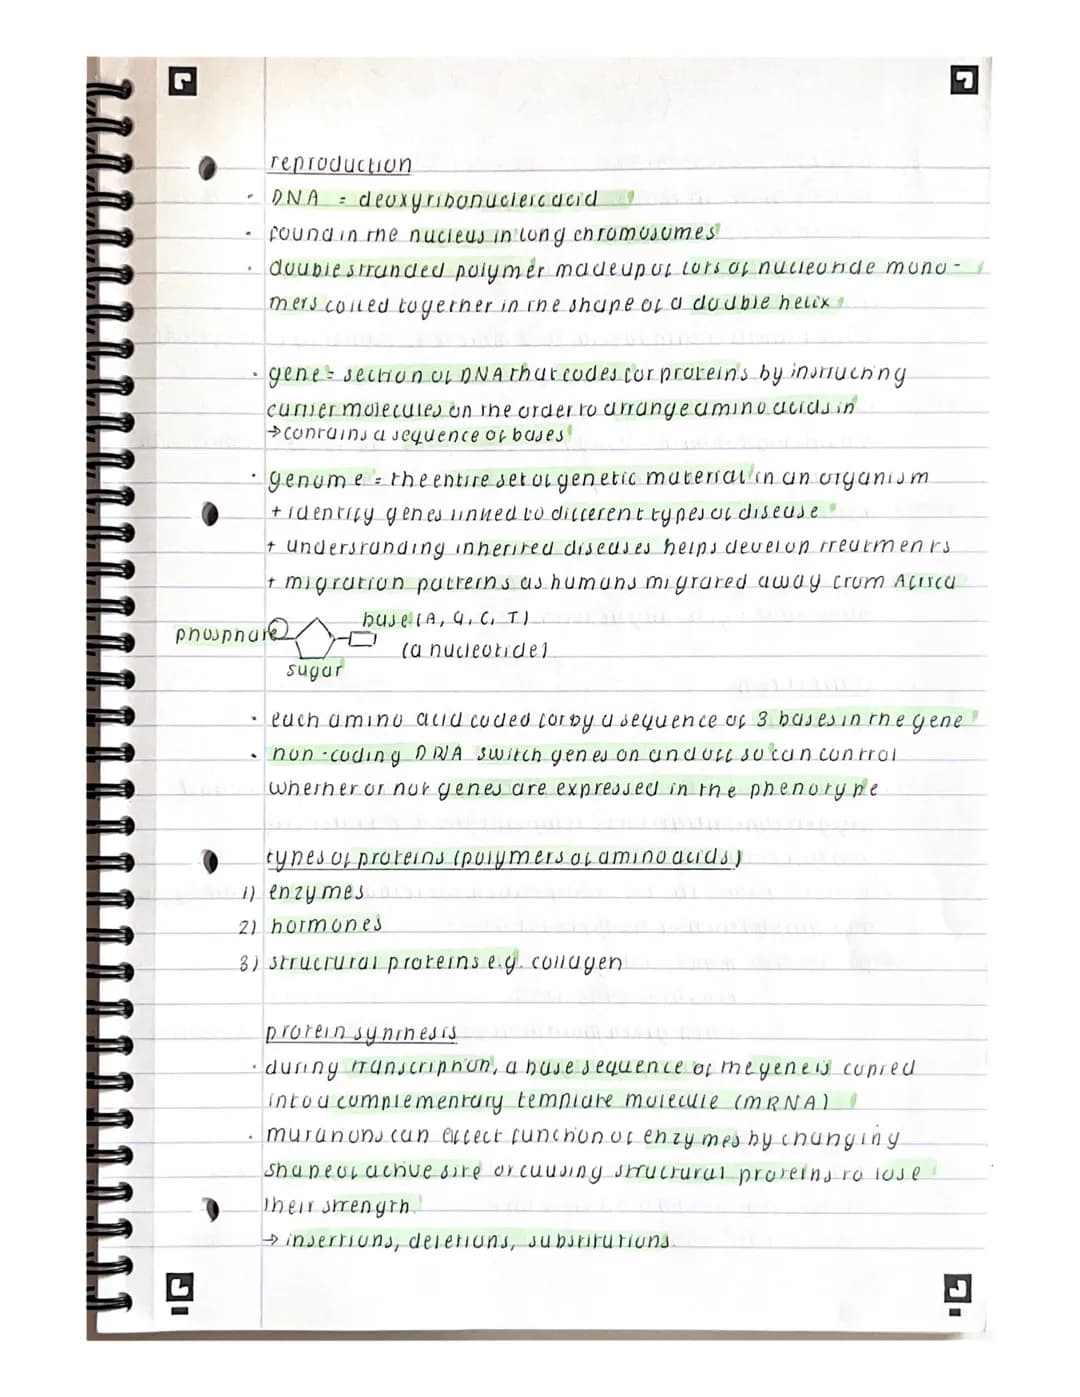 reproduction
· DNA = deoxyribonucleic acid
· found in the nucleus in long chromosomes
· double stranded polymer made up of lots of nucleotide mono-
mers coiled together in the shape of a double helix
· gene = section of DNA that codes for proteins by instructing
carrier molecules on the order to arrange amino acids in
→ contains a sequence of bases
· genome = the entire set of genetic material in an organism
+ identify genes linked to different types of disease
+ understanding inherited diseases helps develop treatments
+ migration patterns as humans migrated away from Africa
base (A, G, C, T)
phosphate
(a nucleotide)
sugar
· each amino acid coded for by a sequence of 3 bases in the gene
· non-coding DNA switch genes on and off so can control
whether or not genes are expressed in the phenotype
types of proteins (polymers of amino acids)
1) enzymes
2) hormones
3) structural proteins e.g. collagen
protein synthesis
· during transcription, a base sequence of the gene is copied
into a complementary template molecule (mRNA)
· mutations can effect function of enzymes by changing
shape of active site or causing structural proteins to lose
their strength
→ insertions, deletions, substitutions.